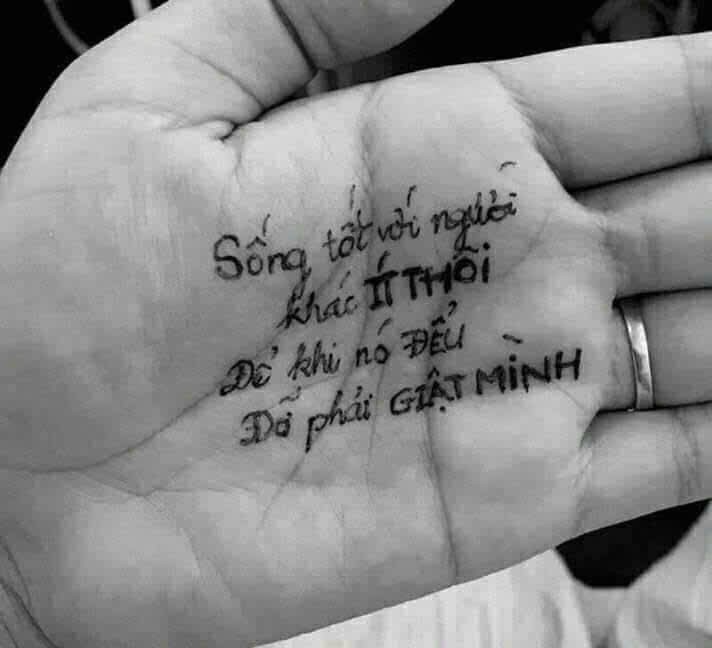 Sống tốt với người
khác ÍT THÔI
Để khi nó ĐỂU
Dỡ phải GIẬT MÌNH